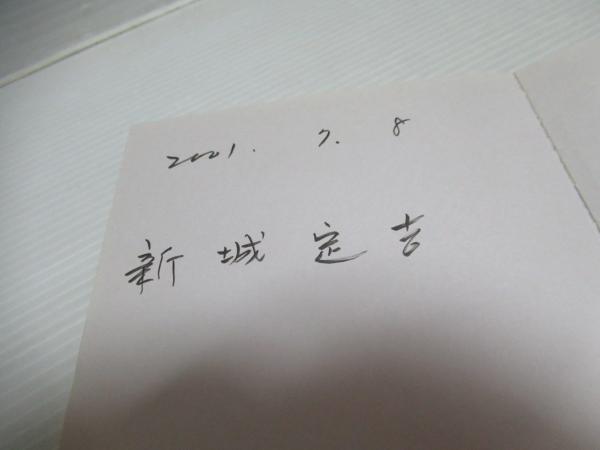 2001. 7. 8
新城定吉